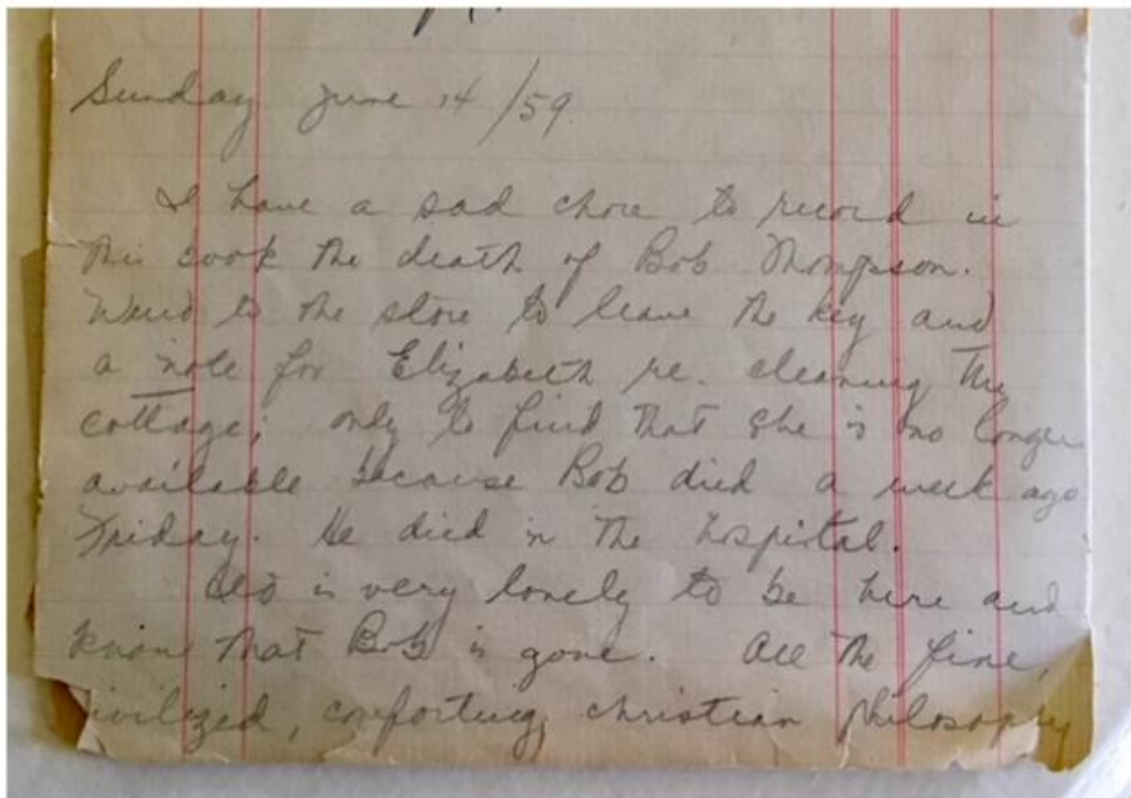 Sunday June 14/59.
I have a sad chore to record in
this book the death of Bob Thompson.
Went to the store to leave the key and
a note for Elizabeth re. cleaning the
cottage; only to find that she is no longer
available because Bob died a week ago
Friday. He died in the hospital.
is very lonely to be here and
know that Bob is gone. All the fine,
ivilized, comforting, christian philosophy